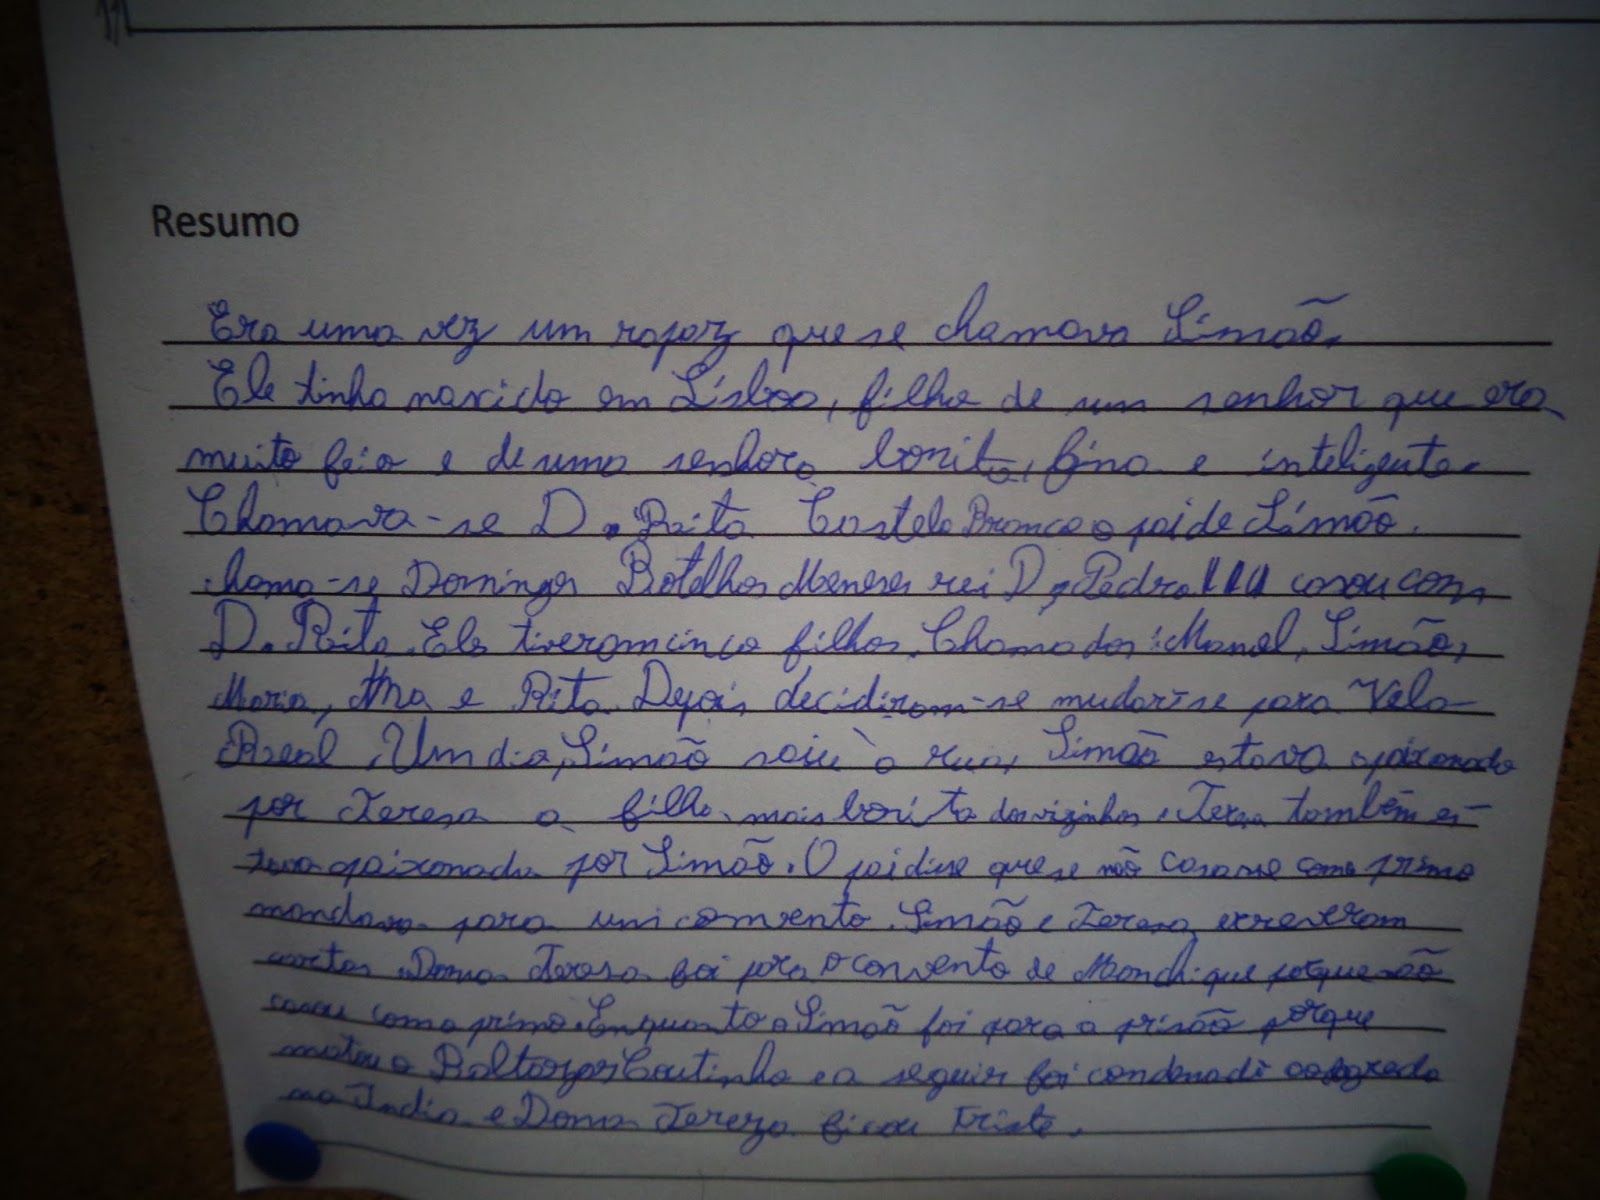 Resumo
Era uma vez um rapaz que se chamava Simão.
Ele tinha nascido em Lisboa, filho de um senhor que era
muito feio e de uma senhora bonita, fina e inteligente.
Chamava-se D. Rita Castelo Branco o pai de Simão.
chama-se Domingos Botelhos Meneses rei D. Pedro III casou com
D. Rita. Ele tiveram cinco filhos. Chamados: Manel, Simão,
Maria, Ana e Rita. Depois decidiram-se mudar-se para Vela
Real. Um dia, Simão saiu à rua, Simão estava apaixonado
por Teresa a filha mais bonita dos vizinhos, Teresa também es-
tava apaixonada por Simão. O pai disse que se não casasse com o primo
mandava para um convento. Simão e Teresa escreveram
cartas. Dona Teresa foi para o convento de Monchique porque não
casou com o primo. Enquanto o Simão foi para a prisão porque
matou o Baltazar Coutinho e a seguir foi condenado
na India e Dona Tereza ficou triste.